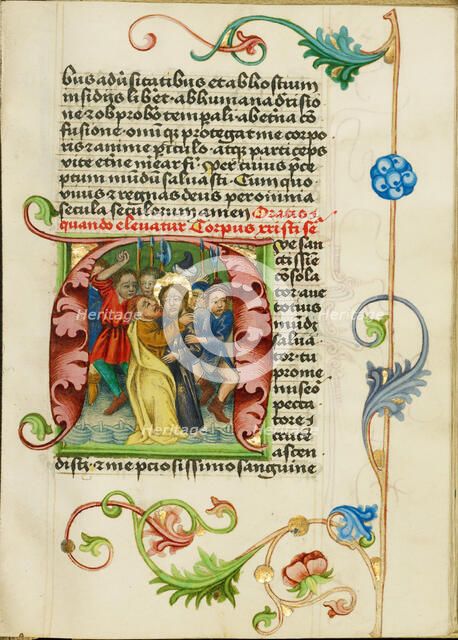 bus adu̅sitatibus et ab hostium
insidijs libet · ab humana dtisio
ne ⁊ obprobo tempali · ab etna co̅
fusione · om̅iq̢ protegat me corpo
ris ⁊ anime p̲iculo · atq̢ particeps
vite etne
p̲ tuius
ptum mu̅du̅ saluasti · Cum quo
viuis ⁊ regnas deus per omnia
secula seculorum amen Oratio
quando eleuatur Corpus xristi
ue san
ctissie̅
co̅sola
tor aue
totius
mu̅di
salua
tor · tu
pro me
misero
pecca
tore ·
cruce̅
ascen
disti · ⁊ me p̲ciosissimo sanguine
Heritage
Heritage
Heritage
Heritage
Heritage
Heritage